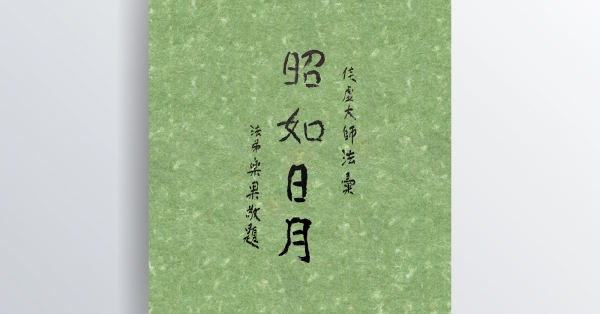 倓虛大師法彙
昭如日月
法弟樂果敬題